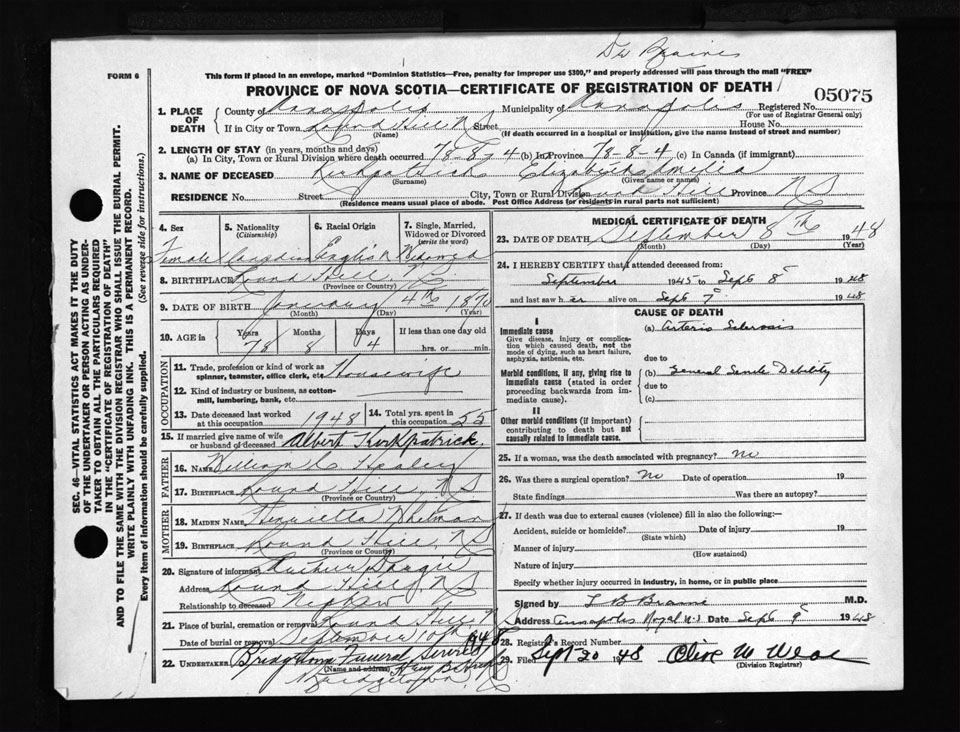 Dr Braine
FORM 6
This form if placed in an envelope, marked "Dominion Statistics—Free, penalty for improper use $300," and properly addressed will pass through the mail "FREE"
PROVINCE OF NOVA SCOTIA—CERTIFICATE OF REGISTRATION OF DEATH
05075
1. PLACE OF DEATH County of Annapolis Municipality of Annapolis Registered No.
(For use of Registrar General only)
If in City or Town Round Hill N S Street House No.
(Name) (If death occurred in a hospital or institution, give the name instead of street and number)
2. LENGTH OF STAY (in years, months and days)
(a) In City, Town or Rural Division where death occurred 78-8-4 (b) In Province 78-8-4 (c) In Canada (if immigrant)
3. NAME OF DECEASED Kirkpatrick Elizabeth
(Surname) (Given name or names)
RESIDENCE No. Street City, Town or Rural Division Round Hill Province N S
(Residence means usual place of abode. Post Office Address for residents in rural parts not sufficient)
4. Sex 5. Nationality (Citizenship) 6. Racial Origin 7. Single, Married, Widowed or Divorced (write the word)
Female Canadian English Widowed
8. BIRTHPLACE Round Hill, N.S.
(Province or Country)
9. DATE OF BIRTH January 4th 1870
(Month) (Day) (Year)
10. AGE in Years Months Days If less than one day old
78 8 4 hrs. or min.
OCCUPATION
11. Trade, profession or kind of work as spinner, teamster, office clerk, etc. Housewife
12. Kind of industry or business, as cotton-mill, lumbering, bank, etc.
13. Date deceased last worked at this occupation 1948 14. Total yrs. spent in this occupation 55
15. If married give name of wife or husband of deceased Albert Kirkpatrick.
FATHER
16. NAME William C Healey
17. Birthplace Round Hill, N S
(Province or Country)
MOTHER
18. MAIDEN NAME Henrietta Whitman
19. Birthplace Round Hill, N S
(Province or Country)
20. Signature of informant
Address Round Hill, N S
Relationship to deceased Nephew
21. Place of burial, cremation or removal Round Hill N S
Date of burial or removal September 10th 1948
22. UNDERTAKER Bridgetown Funeral Service
(Name and address)
Bridgetown, N S
MEDICAL CERTIFICATE OF DEATH
23. DATE OF DEATH September 8th 1948
(Month) (Day) (Year)
24. I HEREBY CERTIFY that I attended deceased from:
September 1945 to Sept 8 1948
and last saw her alive on Sept 7 1948
CAUSE OF DEATH
I
Immediate cause (a) Arterio Sclerosis
Give disease, injury or complication which caused death, not the mode of dying, such as heart failure, asphyxia, asthenia, etc.
due to
Morbid conditions, if any, giving rise to immediate cause (stated in order proceeding backwards from immediate cause).
(b) General Senile Debility
due to
(c)
II
Other morbid conditions (if important) contributing to death but not causally related to immediate cause.
25. If a woman, was the death associated with pregnancy? No
26. Was there a surgical operation? No Date of operation 19
State findings Was there an autopsy?
27. If death was due to external causes (violence) fill in also the following:—
Accident, suicide or homicide? Date of injury 19
(State which)
Manner of injury
(How sustained)
Nature of injury
Specify whether injury occurred in industry, in home, or in public place
Signed by L B Braine M.D.
Address Annapolis Royal N.S Date Sept 9 1948
28. Registrar's Record Number
29. Filed Sept 20 1948 Olive M
(Division Registrar)
SEC. 46—VITAL STATISTICS ACT MAKES IT THE DUTY
OF THE UNDERTAKER OR PERSON ACTING AS UNDER-
TAKER TO OBTAIN ALL THE PARTICULARS REQUIRED
IN THE "CERTIFICATE OF REGISTRATION OF DEATH"
AND TO FILE THE SAME WITH THE DIVISION REGISTRAR WHO SHALL ISSUE THE BURIAL PERMIT.
WRITE PLAINLY WITH UNFADING INK. THIS IS A PERMANENT RECORD.
Every item of information should be carefully supplied. (See reverse side for instructions.)